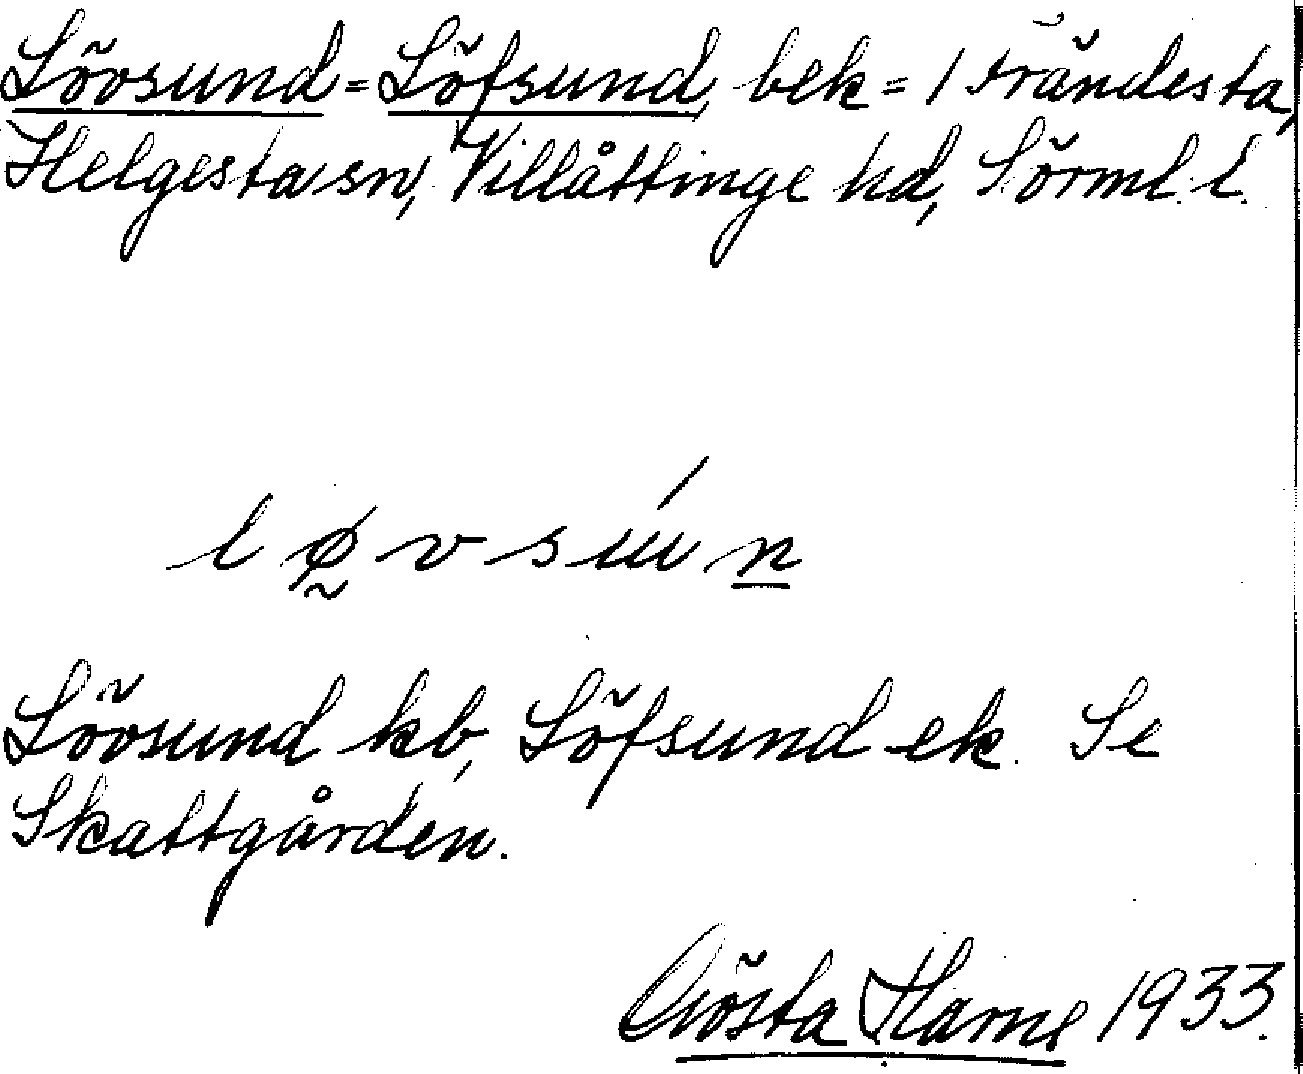 Lövsund = Löfsund, bek = 1 Frändesta,
Helgesta sn, Villåttinge hd, Sörml. l.
løvsún
Lövsund kb, Löfsund ek. Se
Skattgården.
Gösta Harne 1933.